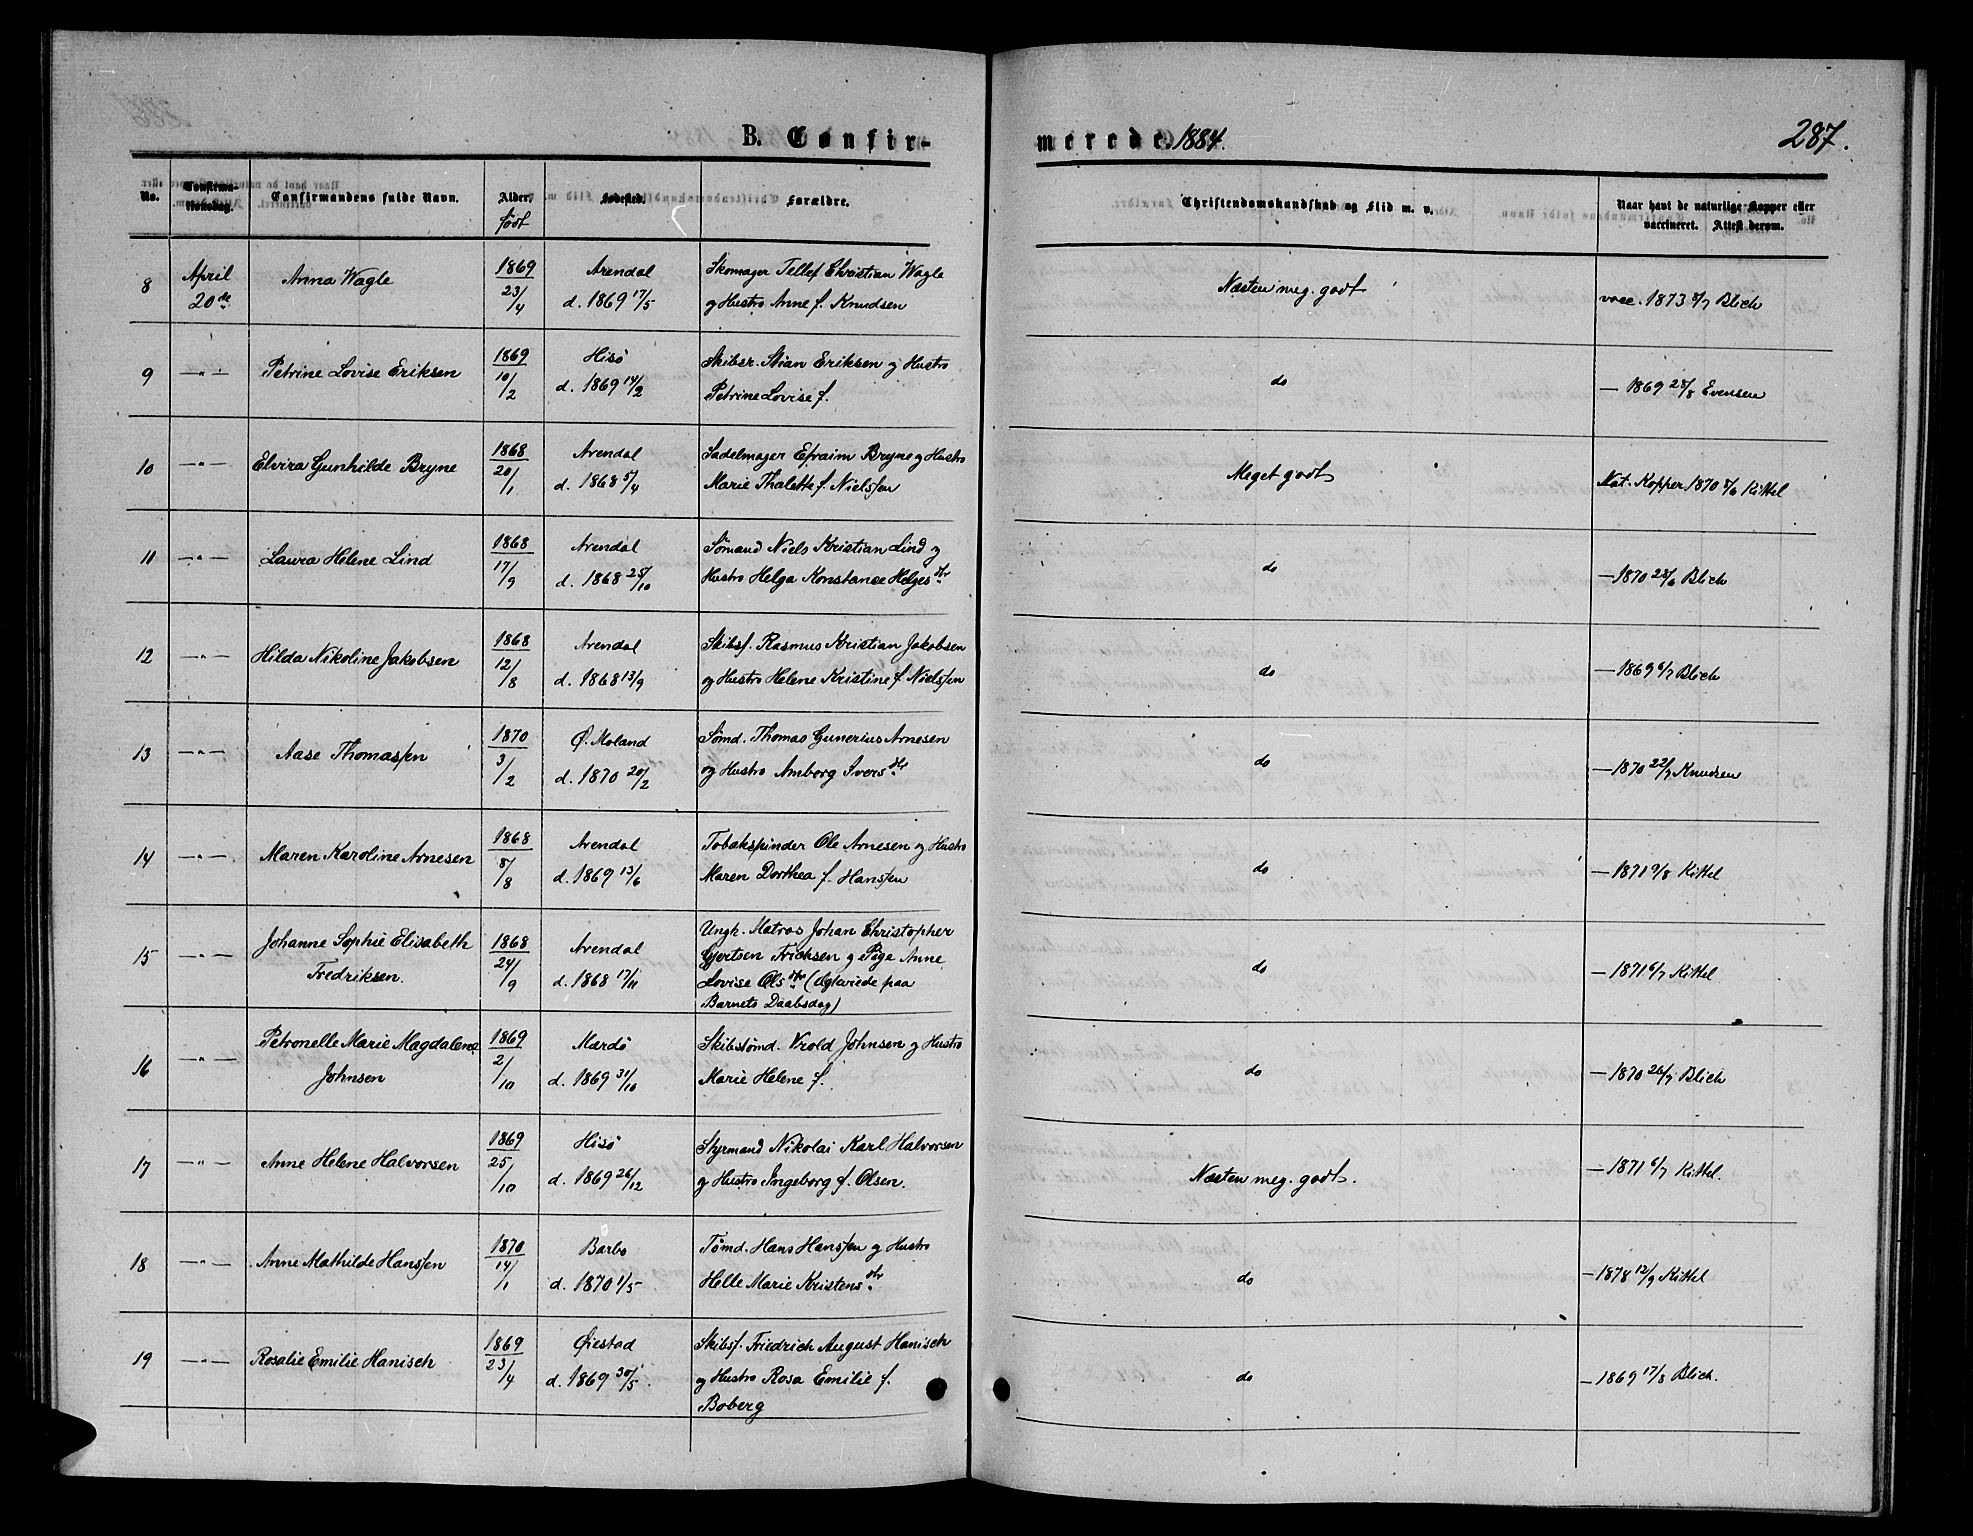 B. Confir-
merede. 1884.
287.
No.
Confirma-
tionsdag.
Confirmandens fulde Navn.
Alder.
født
Fødested.
Forældre.
Christendomskundskab og Flid m. v.
Naar havt de naturlige Kopper eller
vaccineret. Attest derom.
8
April
20de
Anna Wagle
1869
23/4
Arendal
d. 1869 17/5
Skomager Tellef Christian Wagle
og Hustro Anne f. Knudsen
Næsten meg. godt
vacc. 1873 8/7 Blich
9
—"—
Petrine Lovise Eriksen
1869
10/2
Hisö
d. 1869 14/2
Skibsr. Stian Eriksen og Hustro
Petrine Lovise f.
do
— 1869 28/8 Evensen
10
—"—
Elvira Gunhilde Bryne
1868
20/1
Arendal
d. 1868 5/4
Sadelmager Efraim Bryne og Hustro
Marie Thalette f. Nielsen
Meget godt
Nat. Kopper 1870 8/6 Kittel
11
—"—
Laura Helene Lind
1868
17/9
Arendal
d. 1868 25/10
Sømand Niels Kristian Lind og
Hustro Helga Konstance Helgesdtr
do
— 1870 28/6 Blich
12
—"—
Hilda Nikoline Jakobsen
1868
12/8
Arendal
d. 1868 13/9
Skibsf. Rasmus Kristian Jakobsen
og Hustro Helene Kristine f. Nielsen
do
— 1869 6/7 Blich
13
—"—
Aase Thomassen
1870
3/2
Ø. Moland
d. 1870 20/2
Sømd. Thomas Gunerius Arnesen
og Hustro Amborg Iversdtr
do
— 1870 22/7 Knudsen
14
—"—
Maren Karoline Arnesen
1868
8/8
Arendal
d. 1869 13/6
Tobakspinder Ole Arnesen og Hustro
Maren Dorthea f. Hansen
do
— 1871 9/8 Kittel
15
—"—
Johanne Sophie Elisabeth
Fredriksen.
1868
24/9
Arendal
d. 1868 17/11
Ungk. Matros Johan Christopher
Gjertsen Fricksen og Pige Anne
Lovise Olsdtr (Ægteviede paa
Barnets Daabsdag)
do
— 1871 6/7 Kittel
16
—"—
Petronelle Marie Magdalene
Johnsen
1869
2/10
Mærdö
d. 1869 31/10
Skibstømd. Vrold Johnsen og Hustro
Marie Helene f.
do
— 1870 26/7 Blich
17
—"—
Anne Helene Halvorsen
1869
25/10
Hisö
d. 1869 26/12
Styrmand Nikolai Karl Halvorsen
og Hustro Ingeborg f. Olsen.
Næsten meg. godt.
— 1871 6/7 Kittel.
18
—"—
Anne Mathilde Hansen
1870
14/1
Barbo
d. 1870 1/5
Tømd. Hans Hansen og Hustro
Helle Marie Kristensdtr
do
— 1878 12/9 Kittel
19
—"—
Rosalie Emilie Hanisch
1869
23/4
Øiestad
d. 1869 30/5
Skibsf. Friedrich August Hanisch
og Hustro Rosa Emilie f.
Boberg
do
— 1869 17/8 Blich.